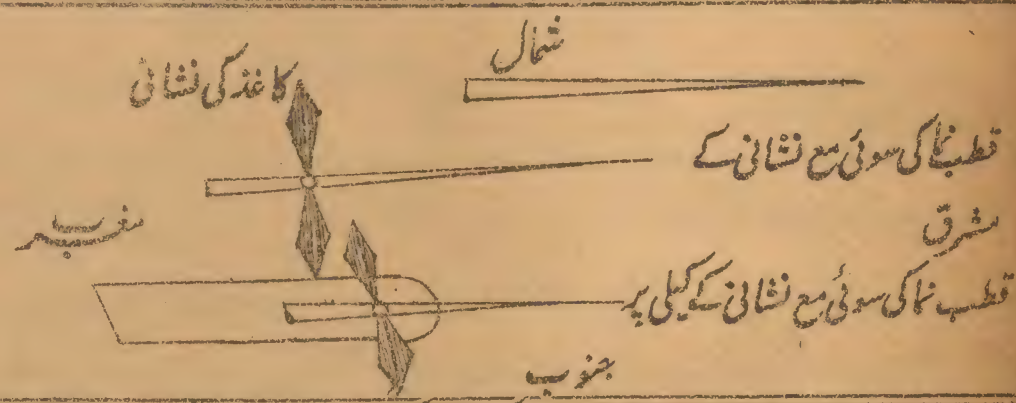 شمال
کاغذ کی نشانی
قطب نما کی سوئی مع نشانی کے
مغرب
مشرق
قطب نما کی سوئی مع نشانی کے کیلی پر
جنوب